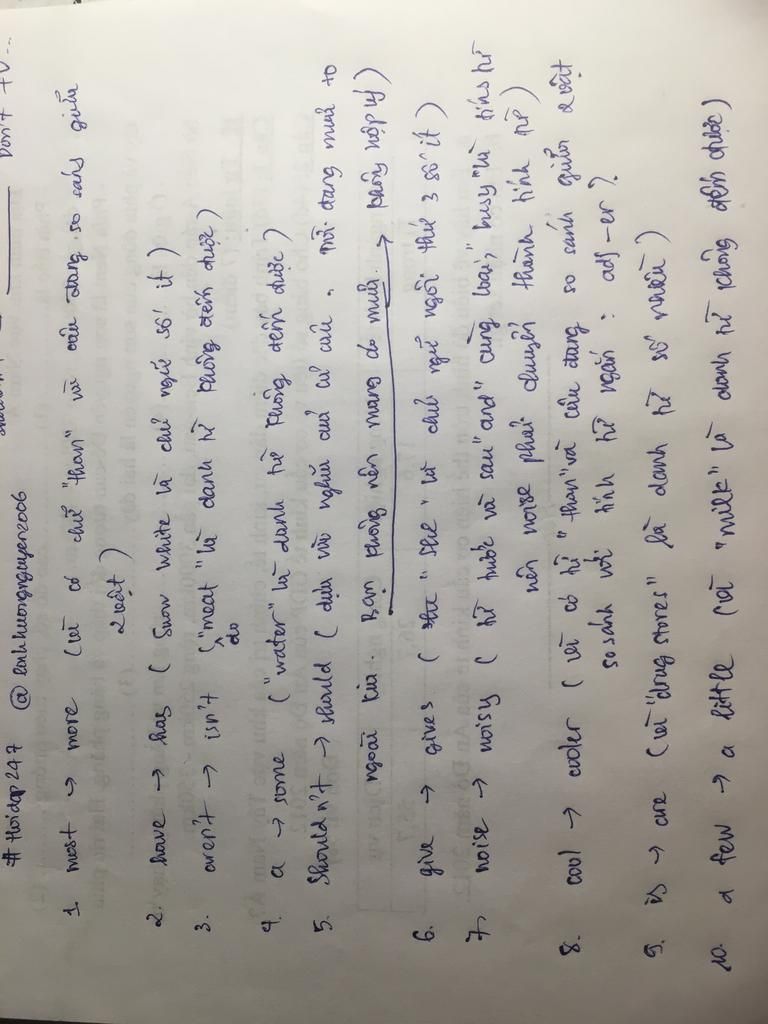 #Hoidap247 @linhhuongnguyen2006
1. most → more (vì có chữ "than" và câu đang so sánh giữa
2 vật)
2. have → has (Snow White là chủ ngữ số ít)
3. aren't → isn't (do "meat" là danh từ không đếm được)
4. a → some ("water" là danh từ không đếm được)
5. Shouldn't → should (dựa vào nghĩa của cả câu. trời đang mưa to
ngoài kia. Bạn không nên mang áo mưa → không hợp lý)
6. give → gives ( "she" là chủ ngữ ngôi thứ 3 số ít)
7, noise → noisy (từ trước và sau "and" cùng loại, "busy" là tính từ
nên noise phải chuyển thành tính từ)
8. cool → cooler (vì có từ "than" và câu đang so sánh giữa 2 vật
so sánh với tính từ ngắn : adj -er)
9. is → are (vì "drug stores" là danh từ số nhiều)
10. a few → a little (vì "milk" là danh từ không đếm được)